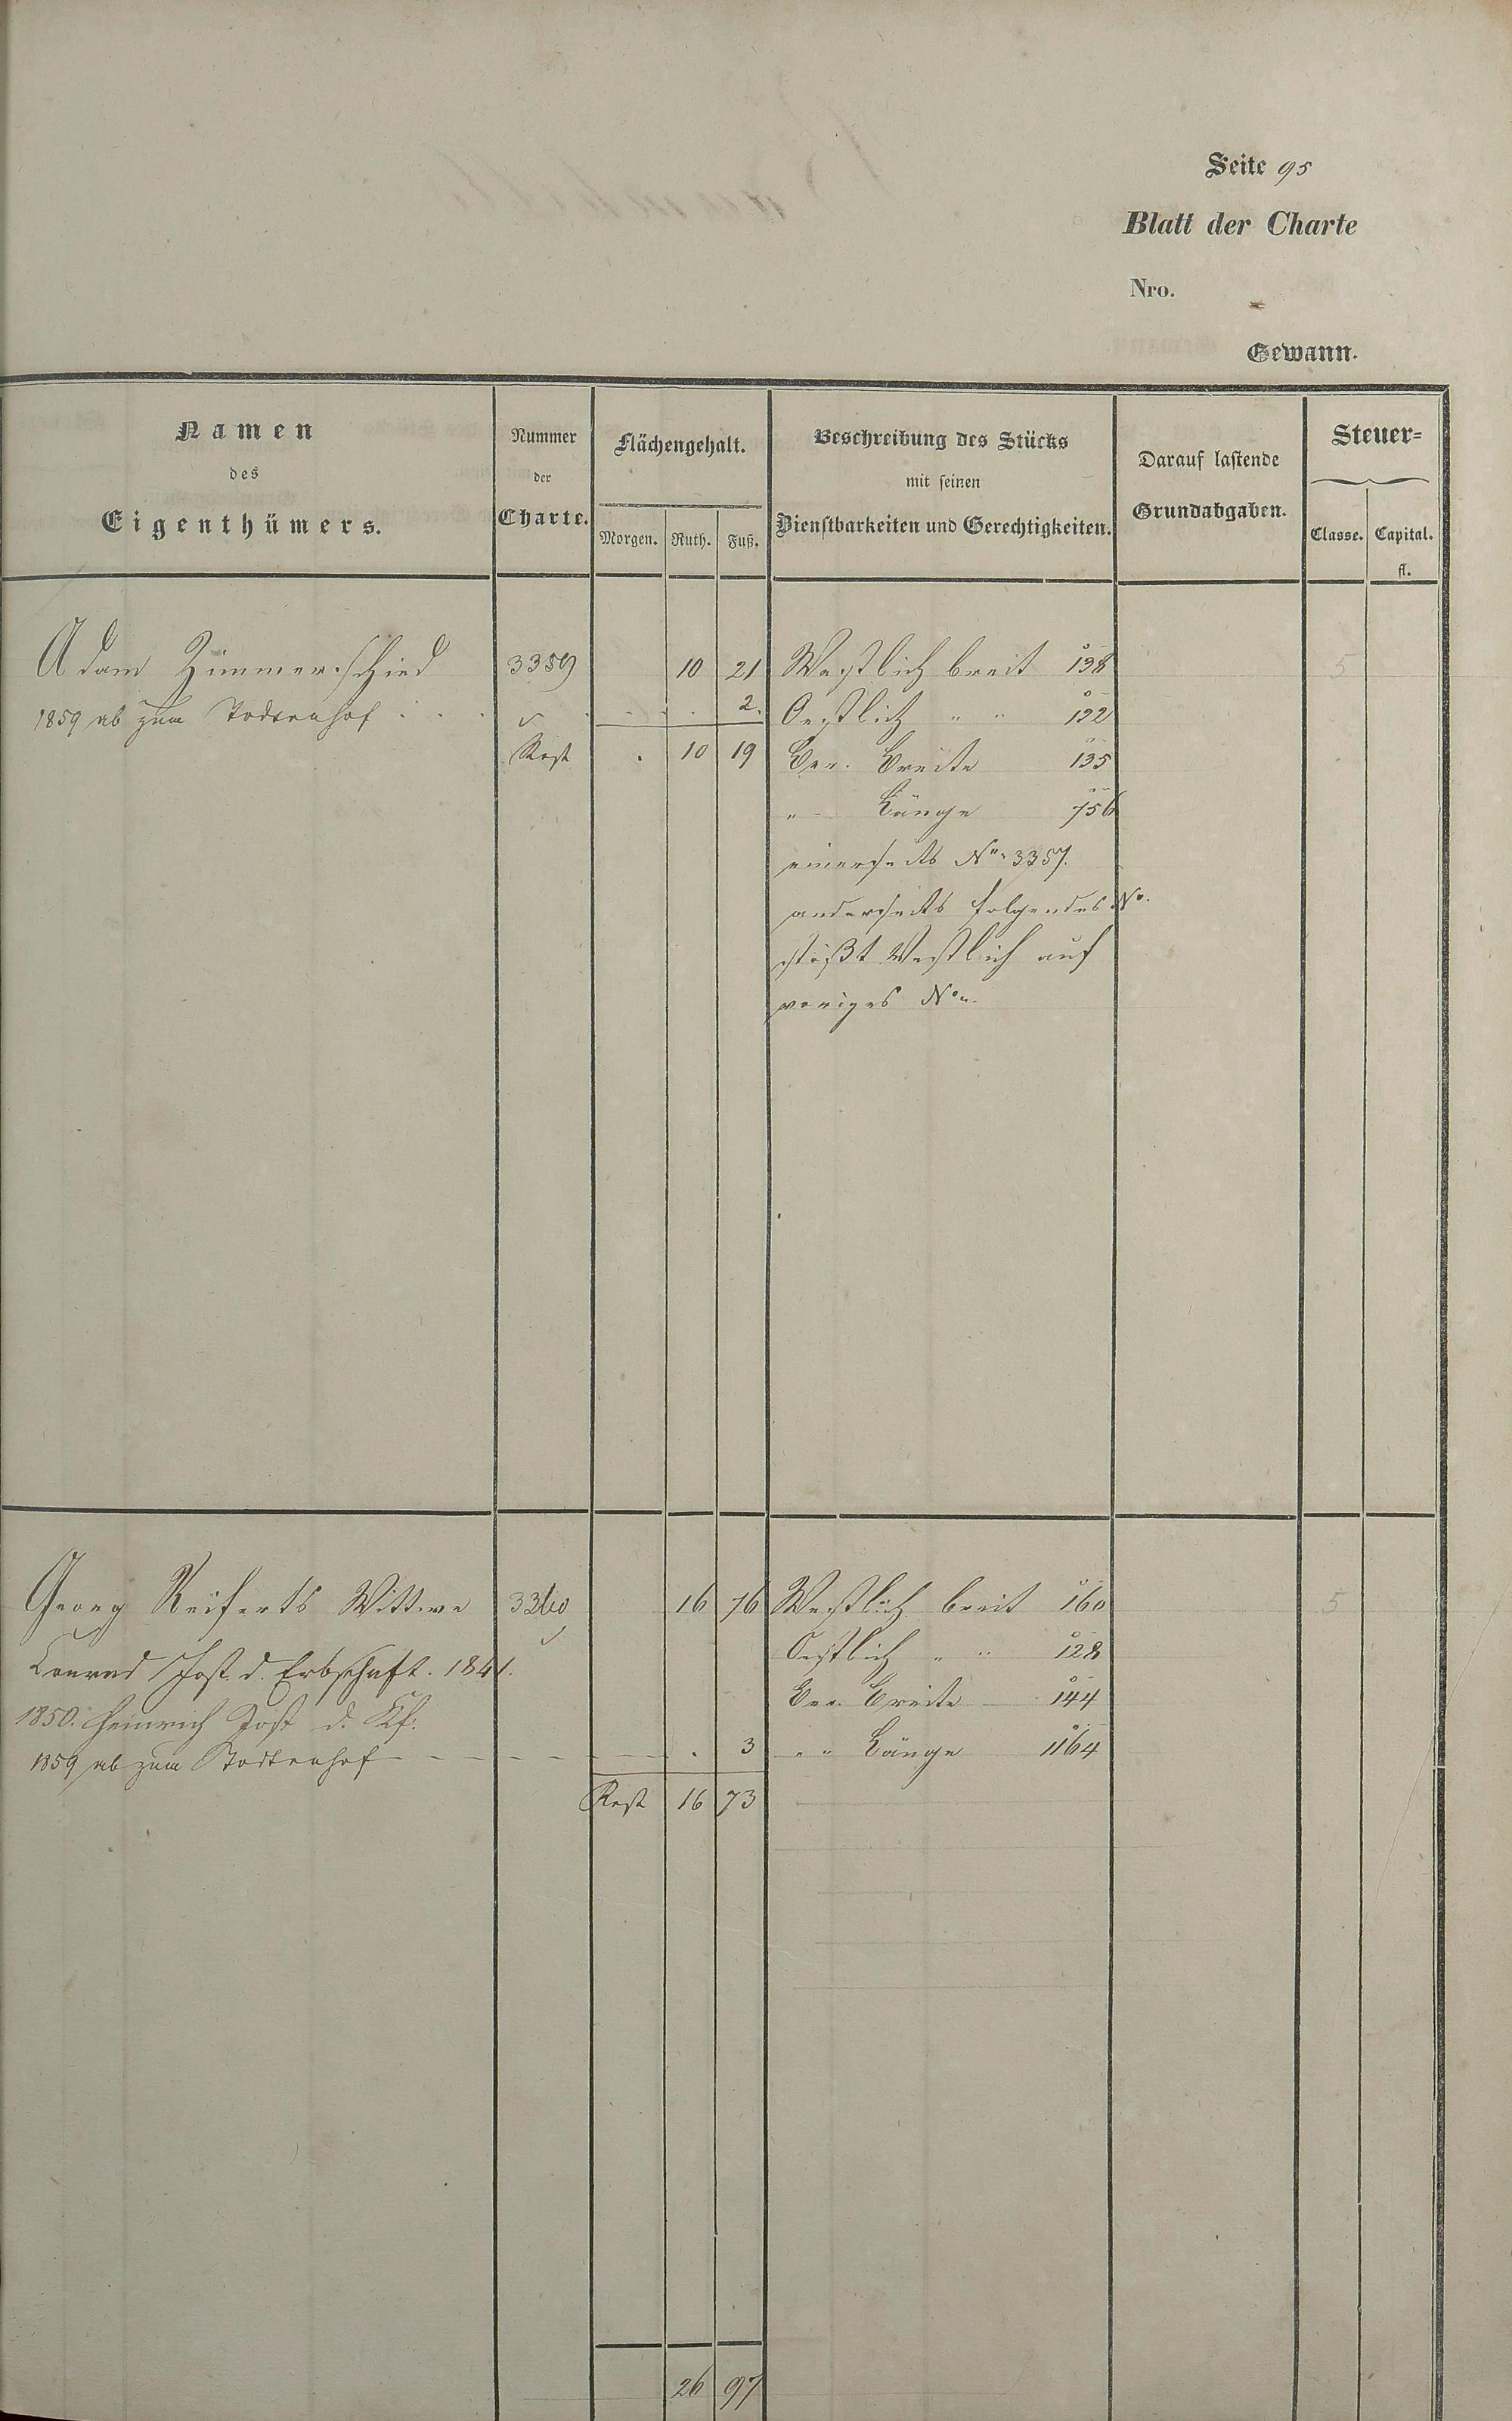 Seite 95
Blatt der Charte
Nro.
Gewann.
Namen des Eigenthümers.
Nummer der Charte.
Flächengehalt.
Morgen. Ruth. Fuß.
Beschreibung des Stücks mit seinen Dienstbarkeiten und Gerechtigkeiten.
Darauf lastende Grundabgaben.
Steuer=
Classe. Capital.
fl.
Adam Zimmerschied 3359 10 21 Westlich breit 138 5
1859 ab zum Todtenhof 2. Oestlich " " 132
Rest 10 19 Ber. Breite 135
" Länge 756
einerseits No. 3357.
anderseits folgendes No.
stößt Westlich auf
voriges No.
Georg Reiferts Wittwe 3360 16 76 Westlich breit 160 5
Oestlich " " 128
Conrad Jost d. Erbschaft. 1841.
Ber. Breite 144
1850. Heinrich Jost d. Kf.
1859 ab zum Todtenhof 3 " " Länge 1164
Rest 16 73
26 97